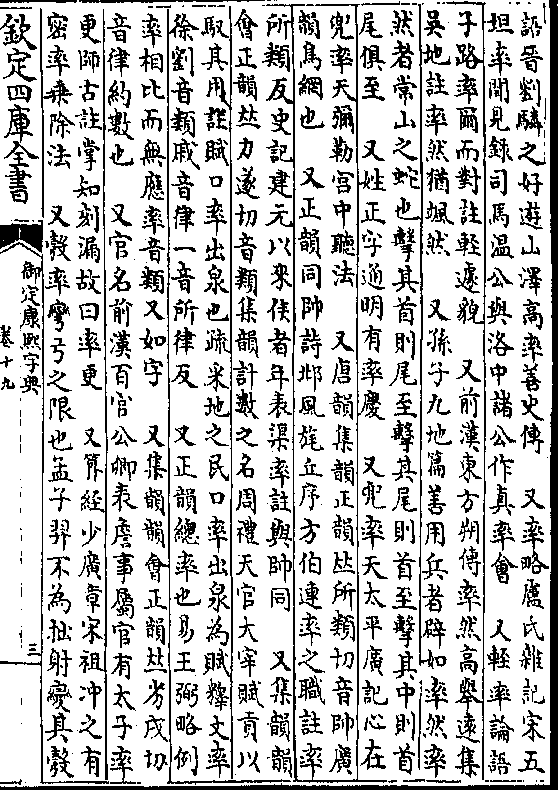 語晉劉驎之好遊山澤高率善史傳　又率略盧氏雜記宋五
坦率聞見錄司馬温公與洛中諸公作真率會　又輕率論語
子路率爾而對註輕遽貌　又前漢東方朔傳率然高舉遠集
吳地註率然猶颯然　又孫子九地篇善用兵者辟如率然率
然者常山之蛇也擊其首則尾至擊其尾則首至擊其中則首
尾俱至　又姓正字通明有率慶　又兜率天太平廣記心在
兜率天彌勒宮中聽法　又唐韻集韻正韻𠀤所類切音帥廣
韻鳥網也　又正韻同帥詩邶風旄丘序方伯連率之職註率
所類反史記建元以來侯者年表渠率註與帥同　又集韻韻
會正韻𠀤力遂切音類集韻計數之名周禮天官大宰賦貢以
馭其用註賦口率出泉也疏采地之民口率出泉為賦釋文率
徐劉音類戚音律一音所律反　又正韻總率也易王弼略例
率相比而無應率音類又如字　又集韻韻會正韻𠀤劣戌切
音律約數也　又官名前漢百官公卿表詹事屬官有太子率
更師古註掌知刻漏故曰率更　又算經少廣章宋祖冲之有
密率乗除法　又彀率彎弓之限也孟子羿不為拙射變其彀
欽定四庫全書
御定康熙字典
卷十九
三